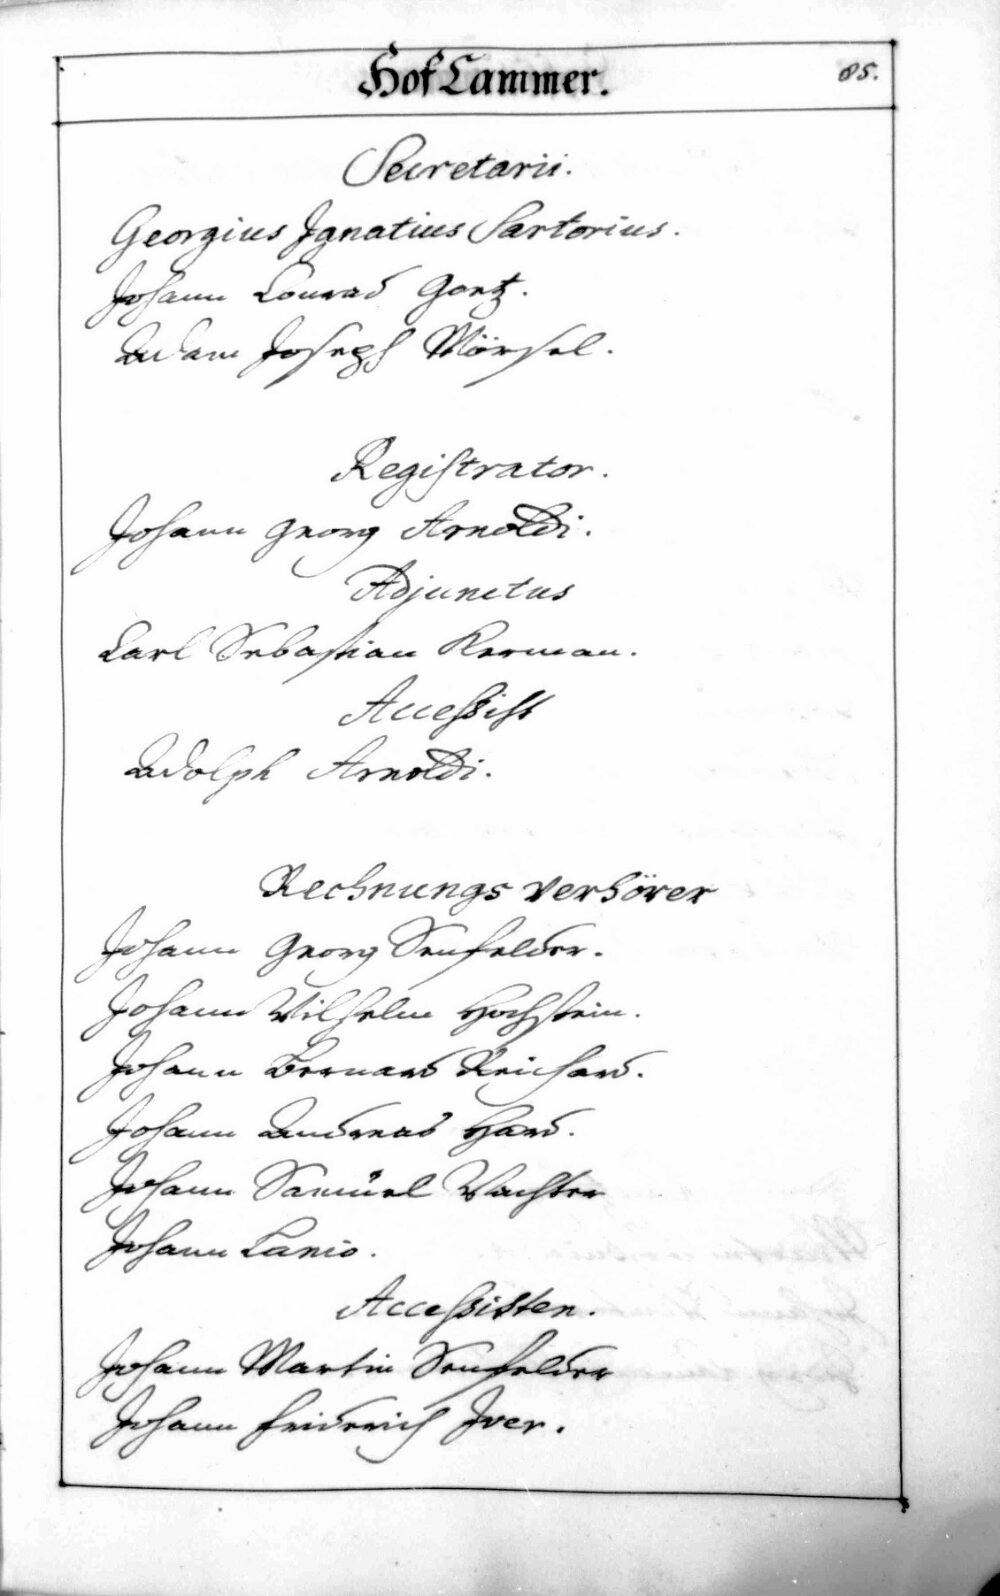 Hof Cammer.
85.
Secretarii.
Georgius Ignatius Sartorius.
Johann Conrad Goetz.
Adam Joseph Mörsel.
Registrator.
Johann Georg Arnoldi.
Adjunctus
Carl Sebastian Kerman.
Accessist
Adolph Arnoldi.
Rechnungs verhörer
Johann Georg Senfelder.
Johann Wilhelm Hochstein.
Johann Bernard Reichard.
Johann Andreas Hard.
Johann Samüel Wachter
Johann Canio.
Accessisten.
Johann Martin Senfelder
Johann Friderich Iver.